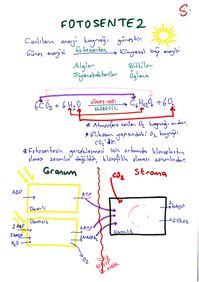 S.
FOTOSENTEZ
Canlıların enerji kaynağı güneştir.
Güneş enerjisi fotosentez Kimyasal bağ enerjisi
Algler Bitkiler
Siyanobakteriler Öglena
6CO₂ + 6H₂O güneş ışığı klorofil C₆H₁₂O₆ + 6O₂
* Atmosfere verilen O₂ kaynağı sudur.
* Glikozun yapısındaki O₂ kaynağı CO₂'dir.
* Fotosentezin gerçekleşmesi için ortamda kloroplastın
olması zorunlu değildir, klorofilin olması zorunludur.
Granum Stroma
ADP ATP CO₂
Devirli
Devirsiz
ADP ATP
NADP NADPH₂
H₂O
O₂
Karanlık
NADP